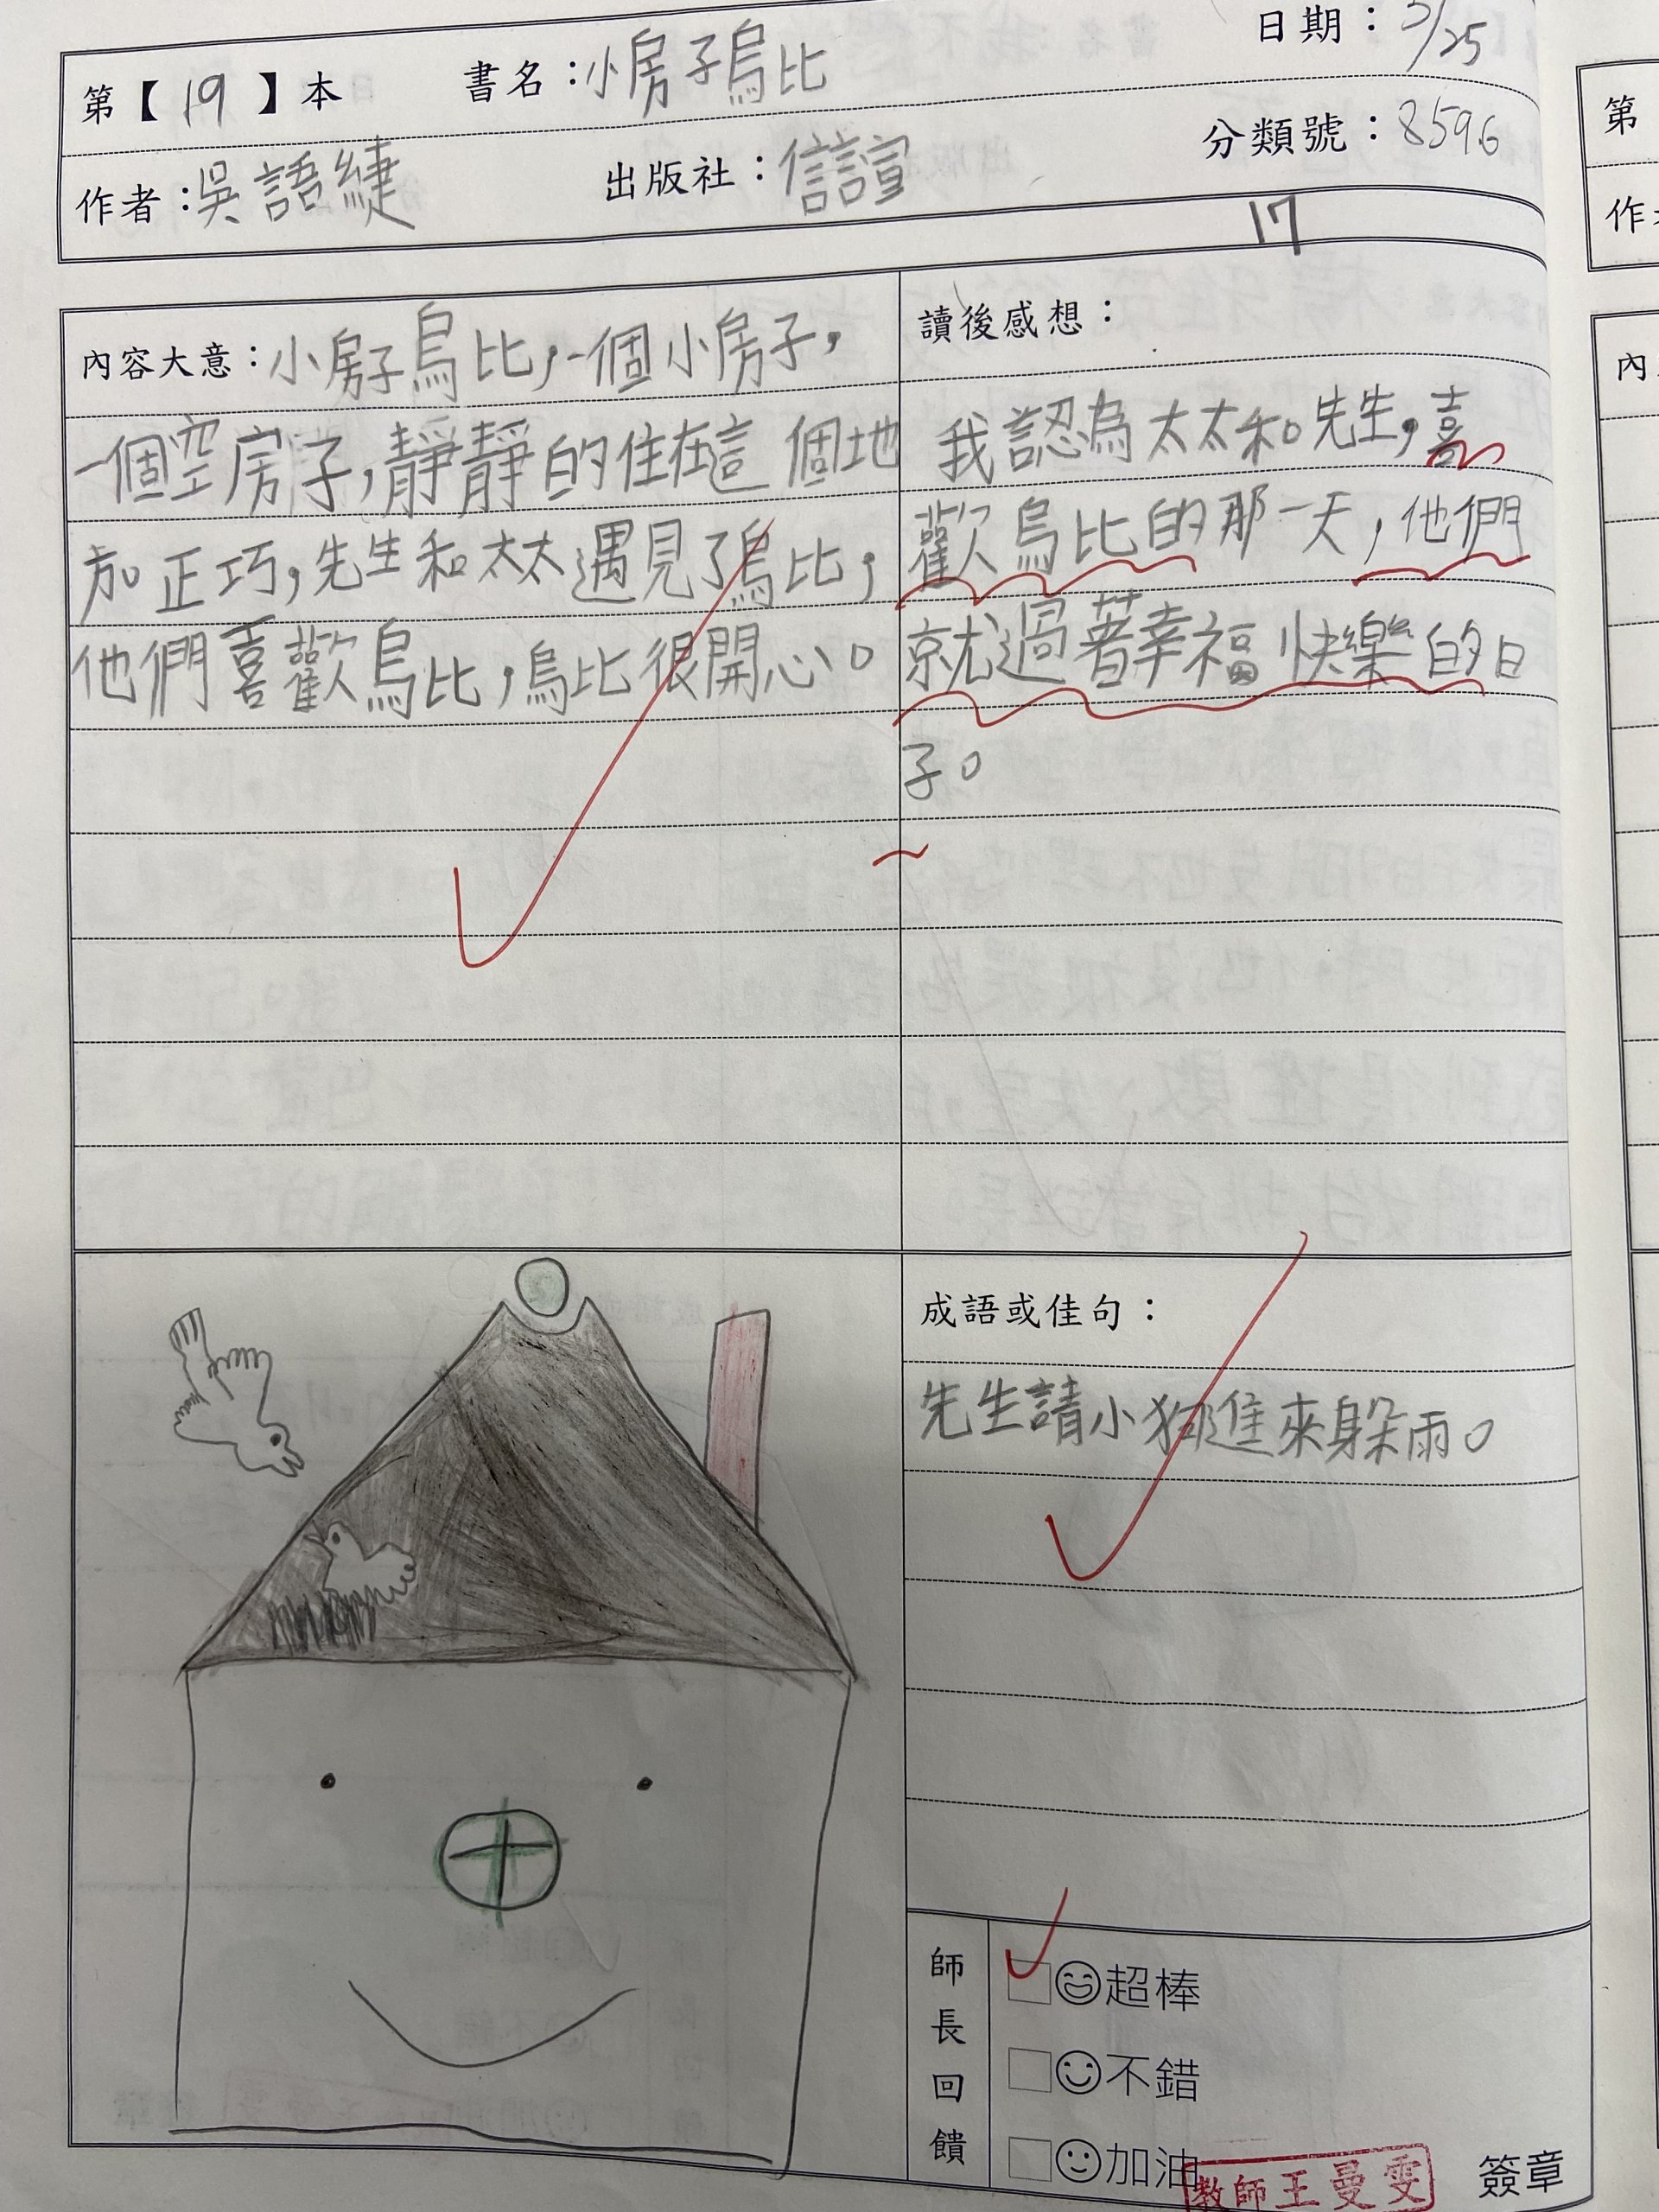 日期：3/25
第【19】本 書名：小房子烏比
分類號：8596
作者：吳語緁 出版社：信誼
17
內容大意：小房子烏比，一個小房子，
一個空房子，靜靜的住在這個地
方。正巧，先生和太太遇見了烏比，
他們喜歡烏比，烏比很開心。
讀後感想：
我認為太太和先生，喜
歡烏比的那一天，他們
就過著幸福快樂的日
子。
成語或佳句：
先生請小狗進來躲雨。
師長回饋
超棒
不錯
加油
教師王曼雯
簽章
第
作
內